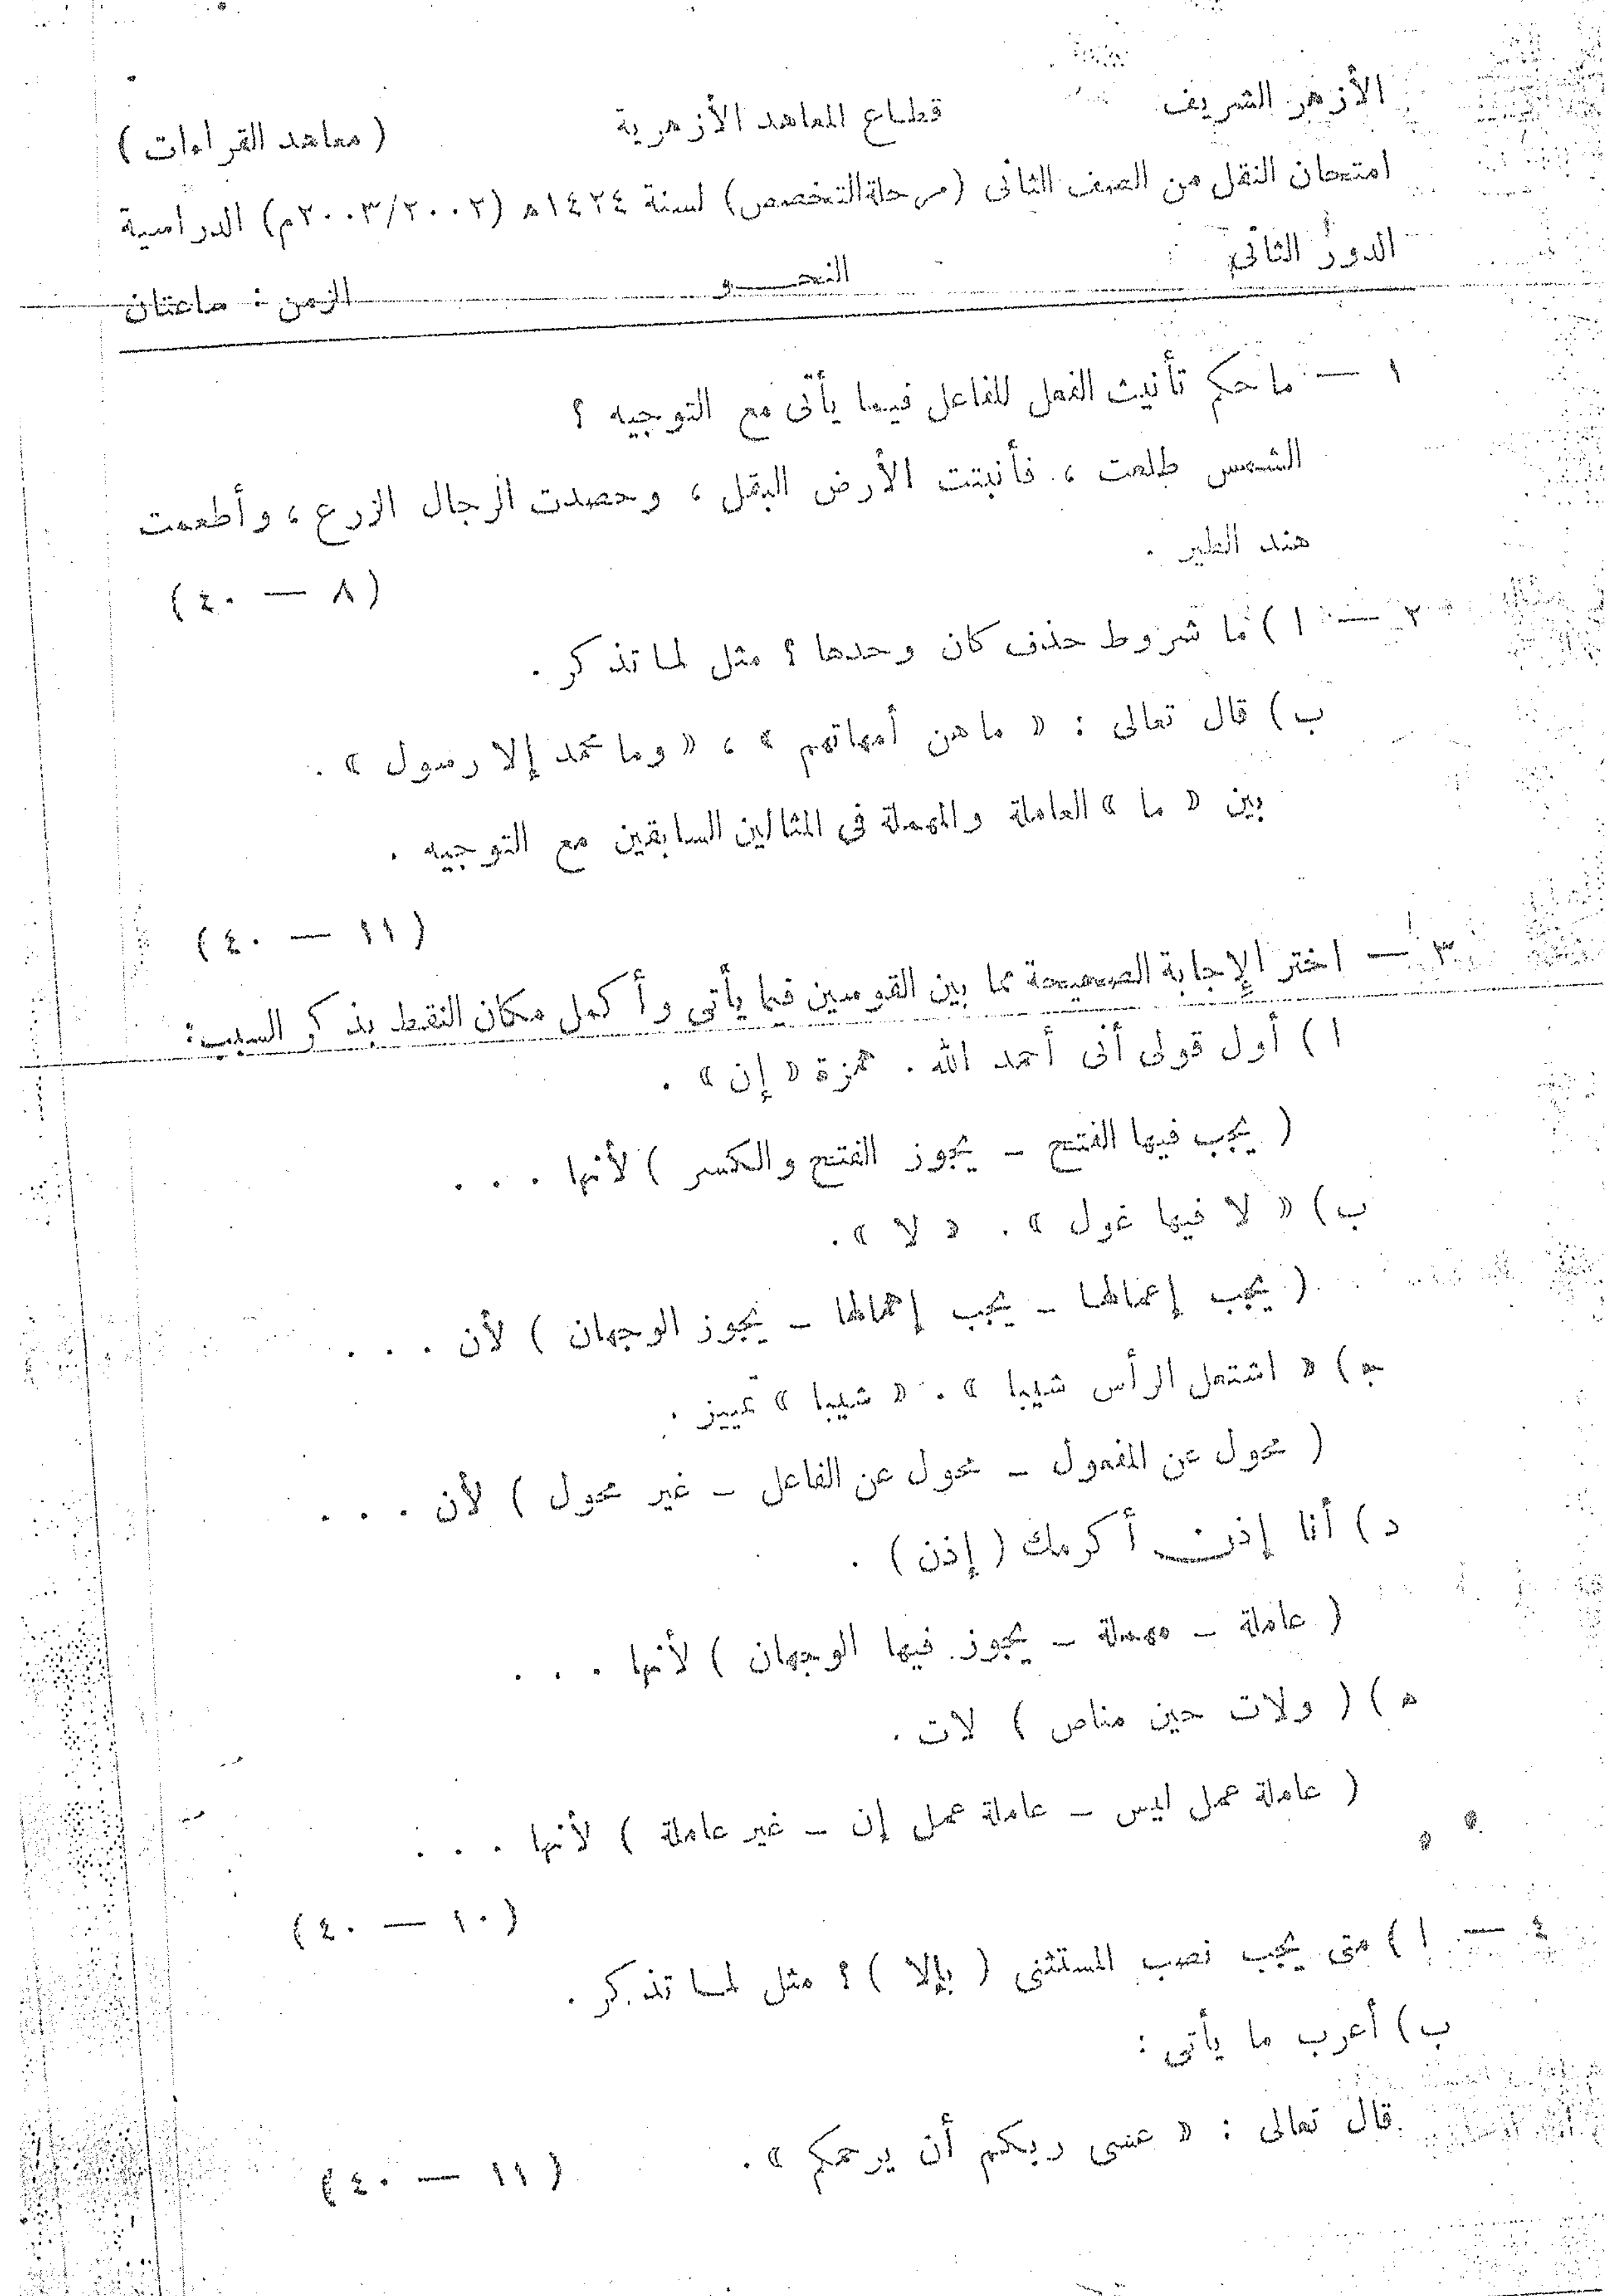 الأزهر الشريف قطاع المعاهد الأزهرية ( معاهد القراءات )
امتحان النقل من الصف الثانى (مرحلة التخصص) لسنة ١٤٢٤ه (٢٠٠٣/٢٠٠٢م) الدراسية
الدور الثانى النحــــو الزمن : ساعتان
١ — ما حكم تأنيث الفعل للفاعل فيما يأتى مع التوجيه ؟
الشمس طلعت ، فأنبتت الأرض البقل ، وحصدت الرجال الزرع ، وأطعمت
هند الطير .
( ٨ — ٤٠ )
٢ — ا ) ما شروط حذف كان وحدها ؟ مثل لما تذكر .
ب ) قال تعالى : « ما هن أمهاتهم » ، « وما محمد إلا رسول » .
بين « ما » العاملة والمهملة فى المثالين السابقين مع التوجيه .
( ١١ — ٤٠ )
٣ — اختر الإجابة الصحيحة مما بين القوسين فيما يأتى وأكمل مكان النقط بذكر السبب :
ا ) أول قولى أنى أحمد الله . همزة « إن » .
( يجب فيها الفتح – يجوز الفتح والكسر ) لأنها . . .
ب ) « لا فيها غول » . « لا » .
( يجب إعمالها – يجب إهمالها – يجوز الوجهان ) لأن . . .
ج ) « اشتعل الرأس شيبا » . « شيبا » تمييز .
( محول عن المفعول – محول عن الفاعل – غير محول ) لأن . . .
د ) أنا إذن أكرمك ( إذن ) .
( عاملة – مهملة – يجوز فيها الوجهان ) لأنها . . .
ه ) ( ولات حين مناص ) لات .
( عاملة عمل ليس – عاملة عمل إن – غير عاملة ) لأنها . . .
( ١٠ — ٤٠ )
٤ — ا ) متى يجب نصب المستثنى ( بإلا ) ؟ مثل لما تذكر .
ب ) أعرب ما يأتى :
قال تعالى : « عسى ربكم أن يرحمكم » . ( ١١ — ٤٠ )